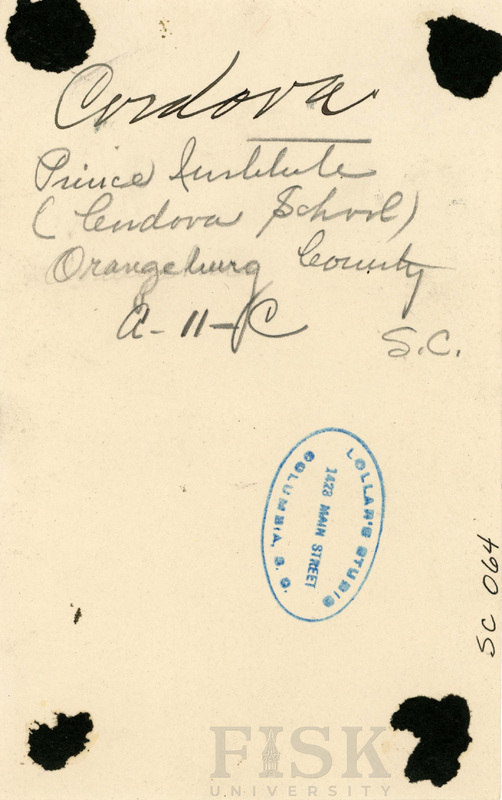 Cordova
Prince Institute
(Cordova School)
Orangeburg County
A-11-C
S.C.
LOLLAR'S STUDIO
1423 MAIN STREET
COLUMBIA, S. C.
SC 064
FISK
UNIVERSITY